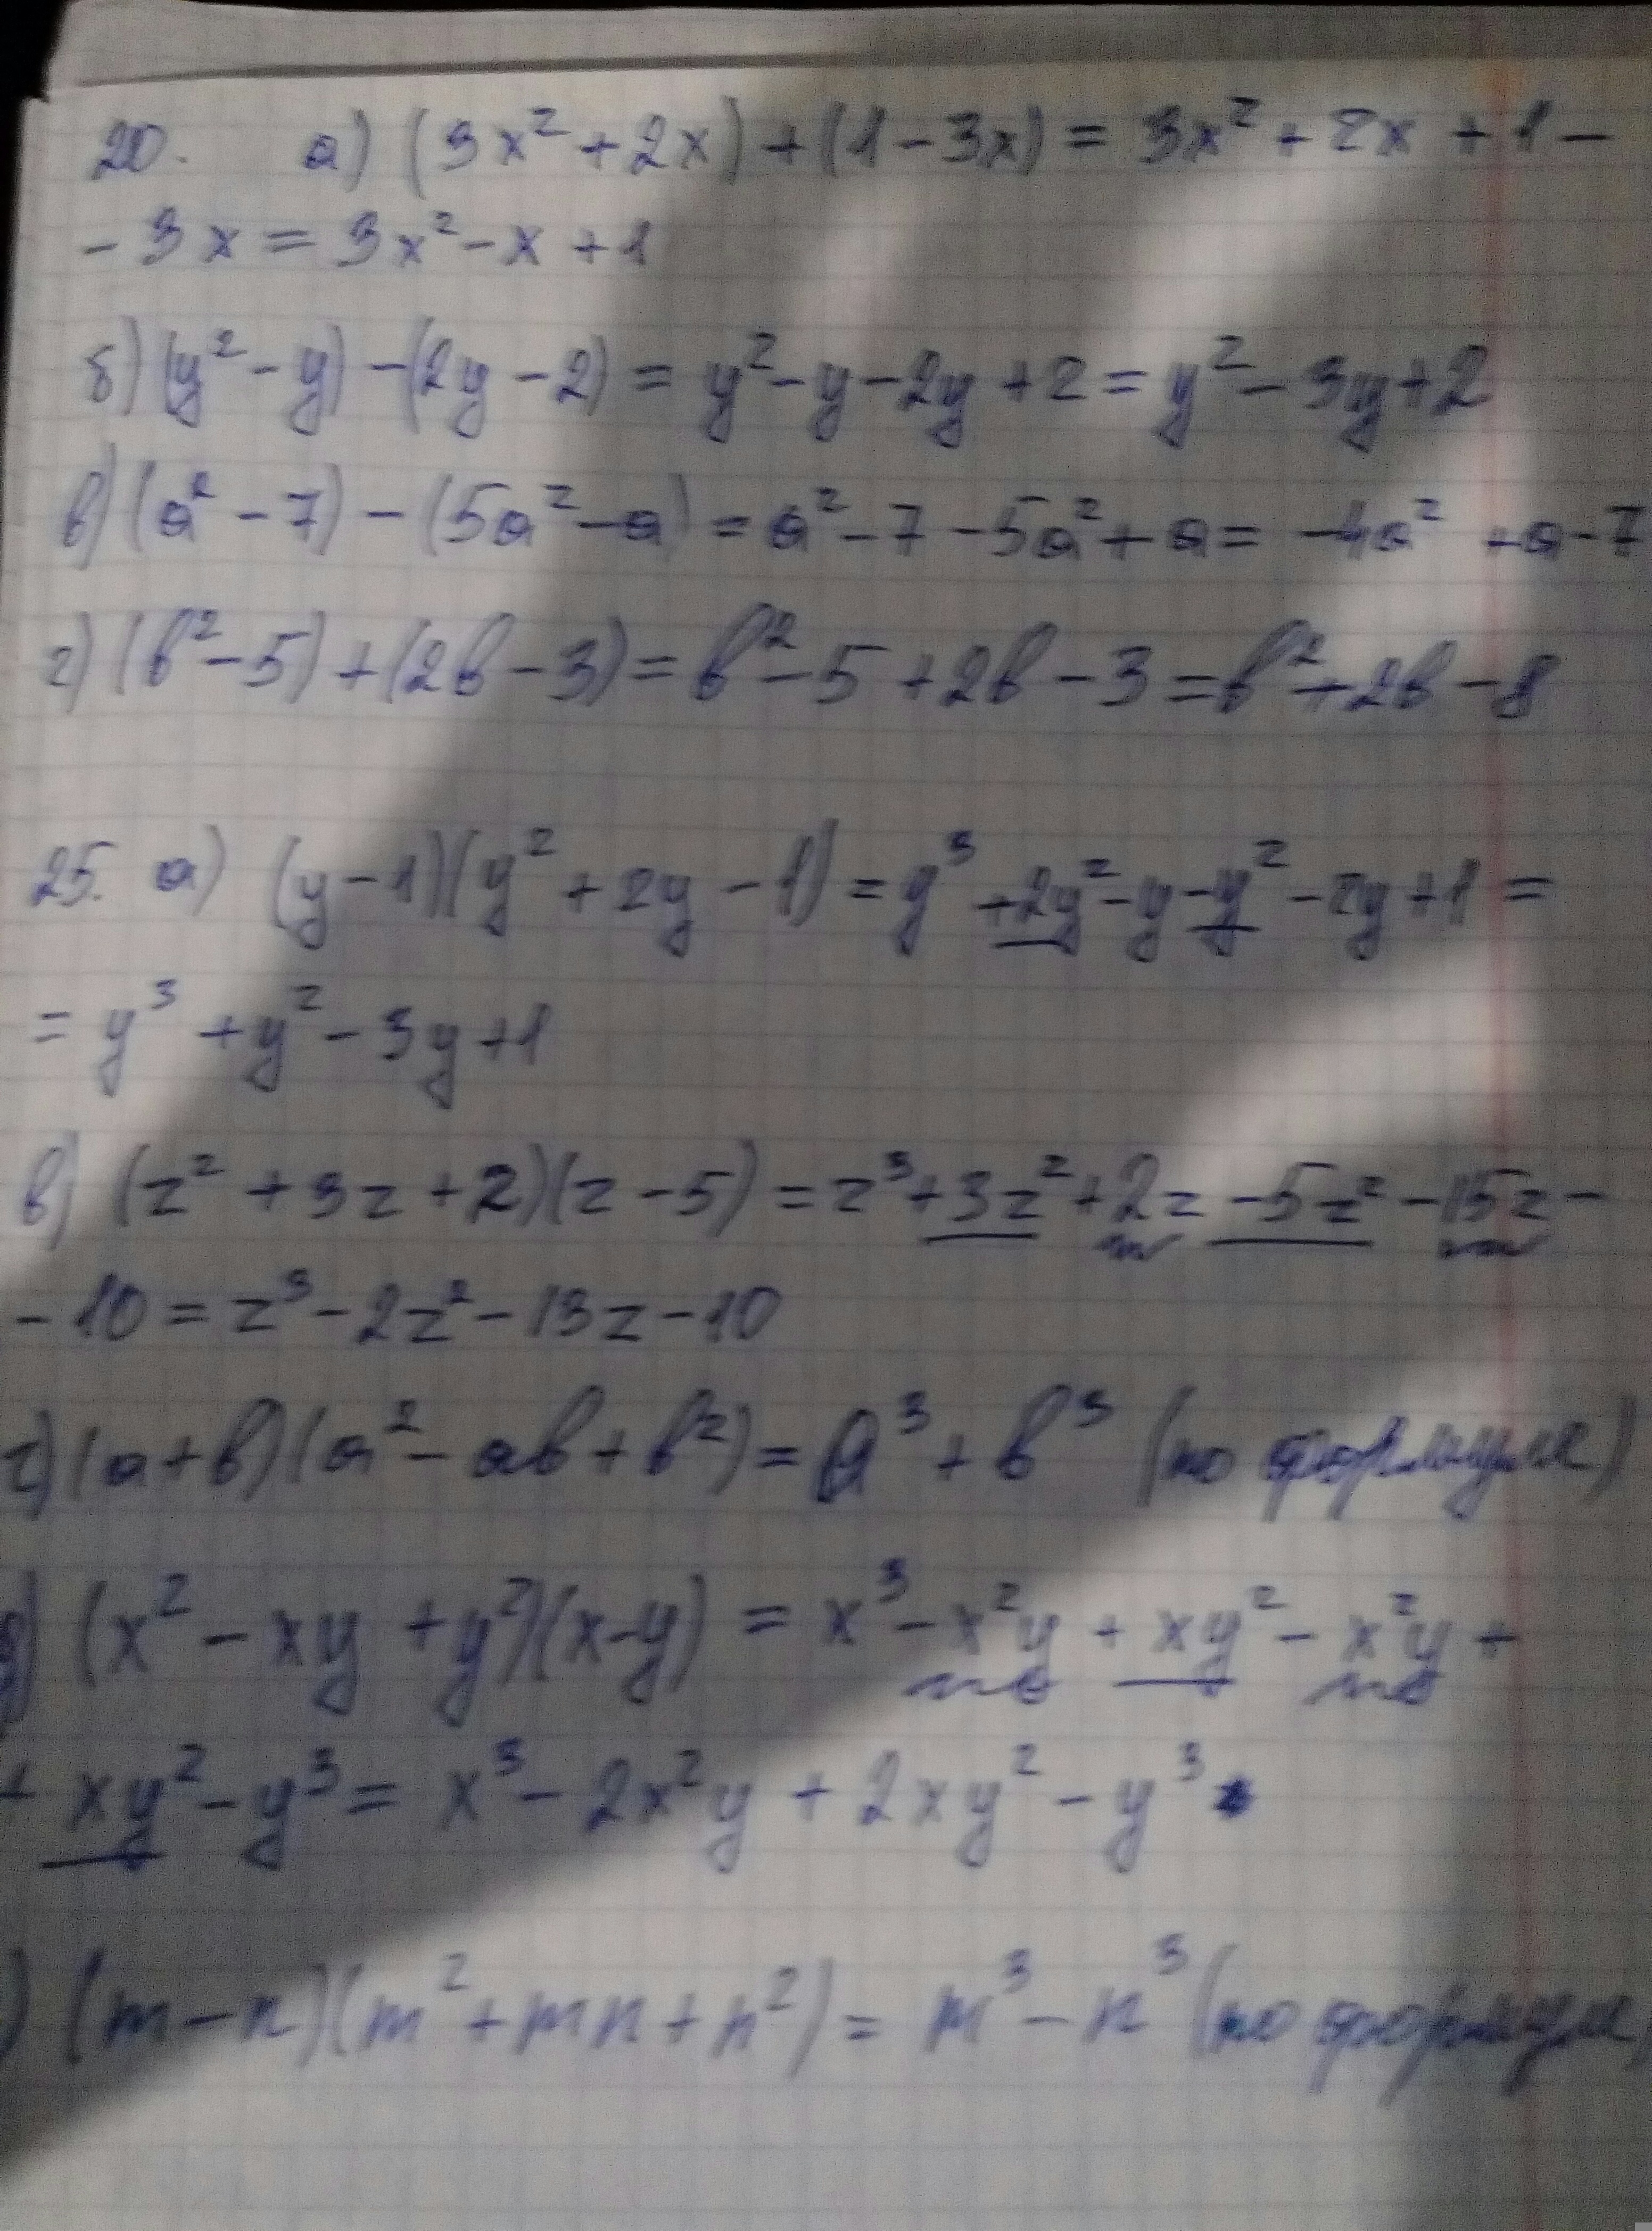 20. а) (3x² + 2x) + (1 - 3x) = 3x² + 2x + 1 -
- 3x = 3x² - x + 1
б) (y² - y) - (2y - 2) = y² - y - 2y + 2 = y² - 3y + 2
в) (a² - 7) - (5a² - a) = a² - 7 - 5a² + a = -4a² + a - 7
г) (b² - 5) + (2b - 3) = b² - 5 + 2b - 3 = b² + 2b - 8
25. а) (y - 1)(y² + 2y - 1) = y³ + 2y² - y - y² - 2y + 1 =
= y³ + y² - 3y + 1
в) (z² + 3z + 2)(z - 5) = z³ + 3z² + 2z - 5z² - 15z -
- 10 = z³ - 2z² - 13z - 10
г) (a + b)(a² - ab + b²) = a³ + b³ (по формуле)
д) (x² - xy + y²)(x - y) = x³ - x²y + xy² - x²y +
+ xy² - y³ = x³ - 2x²y + 2xy² - y³
) (m - n)(m² + mn + n²) = m³ - n³ (по формуле)